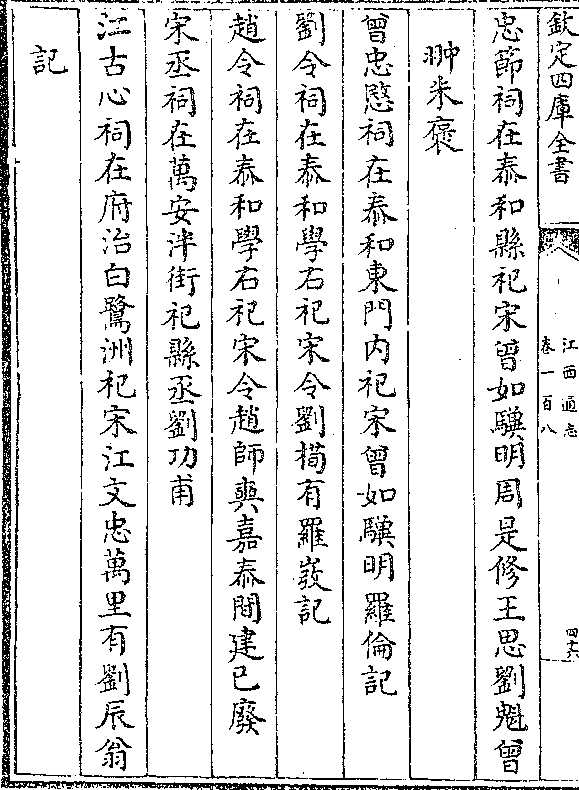 欽定四庫全書
江西通志
卷一百八
四十六
忠節祠在泰和縣祀宋曾如驥明周是修王思劉魁曾
翀朱褒
曾忠愍祠在泰和東門内祀宋曾如驥明羅倫記
劉令祠在泰和學右祀宋令劉㮚有羅㠭記
趙令祠在泰和學右祀宋令趙師㒟嘉泰間建已廢
宋丞祠在萬安泮街祀縣丞劉功甫
江古心祠在府治白鷺洲祀宋江文忠萬里有劉辰翁
記